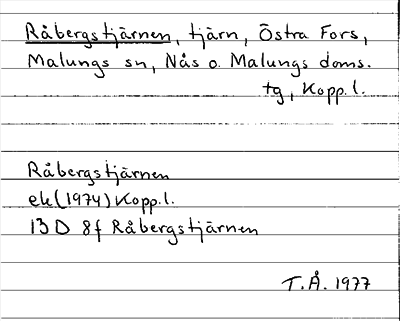 Råbergstjärnen, tjärn, Östra Fors,
Malungs sn, Nås o. Malungs doms.
tg, Kopp. l.
Råbergstjärnen
ek (1974) Kopp. l.
13 D 8f Råbergstjärnen
T.Å. 1977